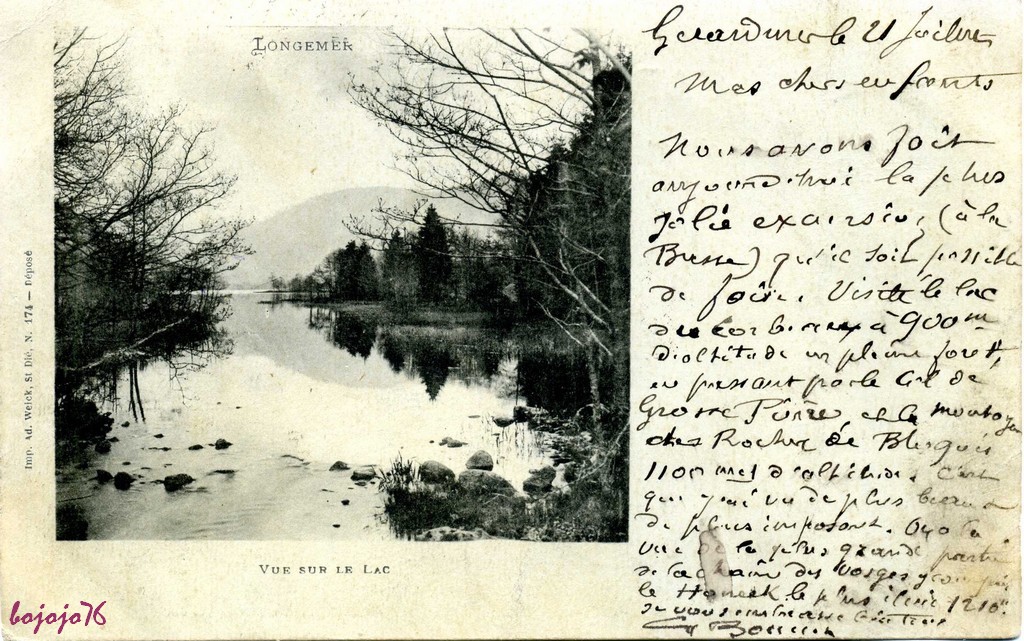 LONGEMER
Imp. Ad. Weick, St Dié, N. 174 — Déposé
VUE SUR LE LAC
bojojo76
Gerardmer le 21 Juillet
Mes chers enfants
Nous avons fait
aujourd'hui la plus
jolie excursion, (à la
Bresse) qu'il soit possible
de faire. Visité le lac
des corbeaux à 900 m
d'altitude en pleine foret,
en passant par le Col de
Grosse Pierre et la montagne
des Roches de
1100 met d'altitude. C'est
que j'ai vu de plus beau
de plus imposant. On a la
vue de la plus grande partie
de la chaîne des Vosges y compris
le Honeck le plus élevé
je vous embrasse